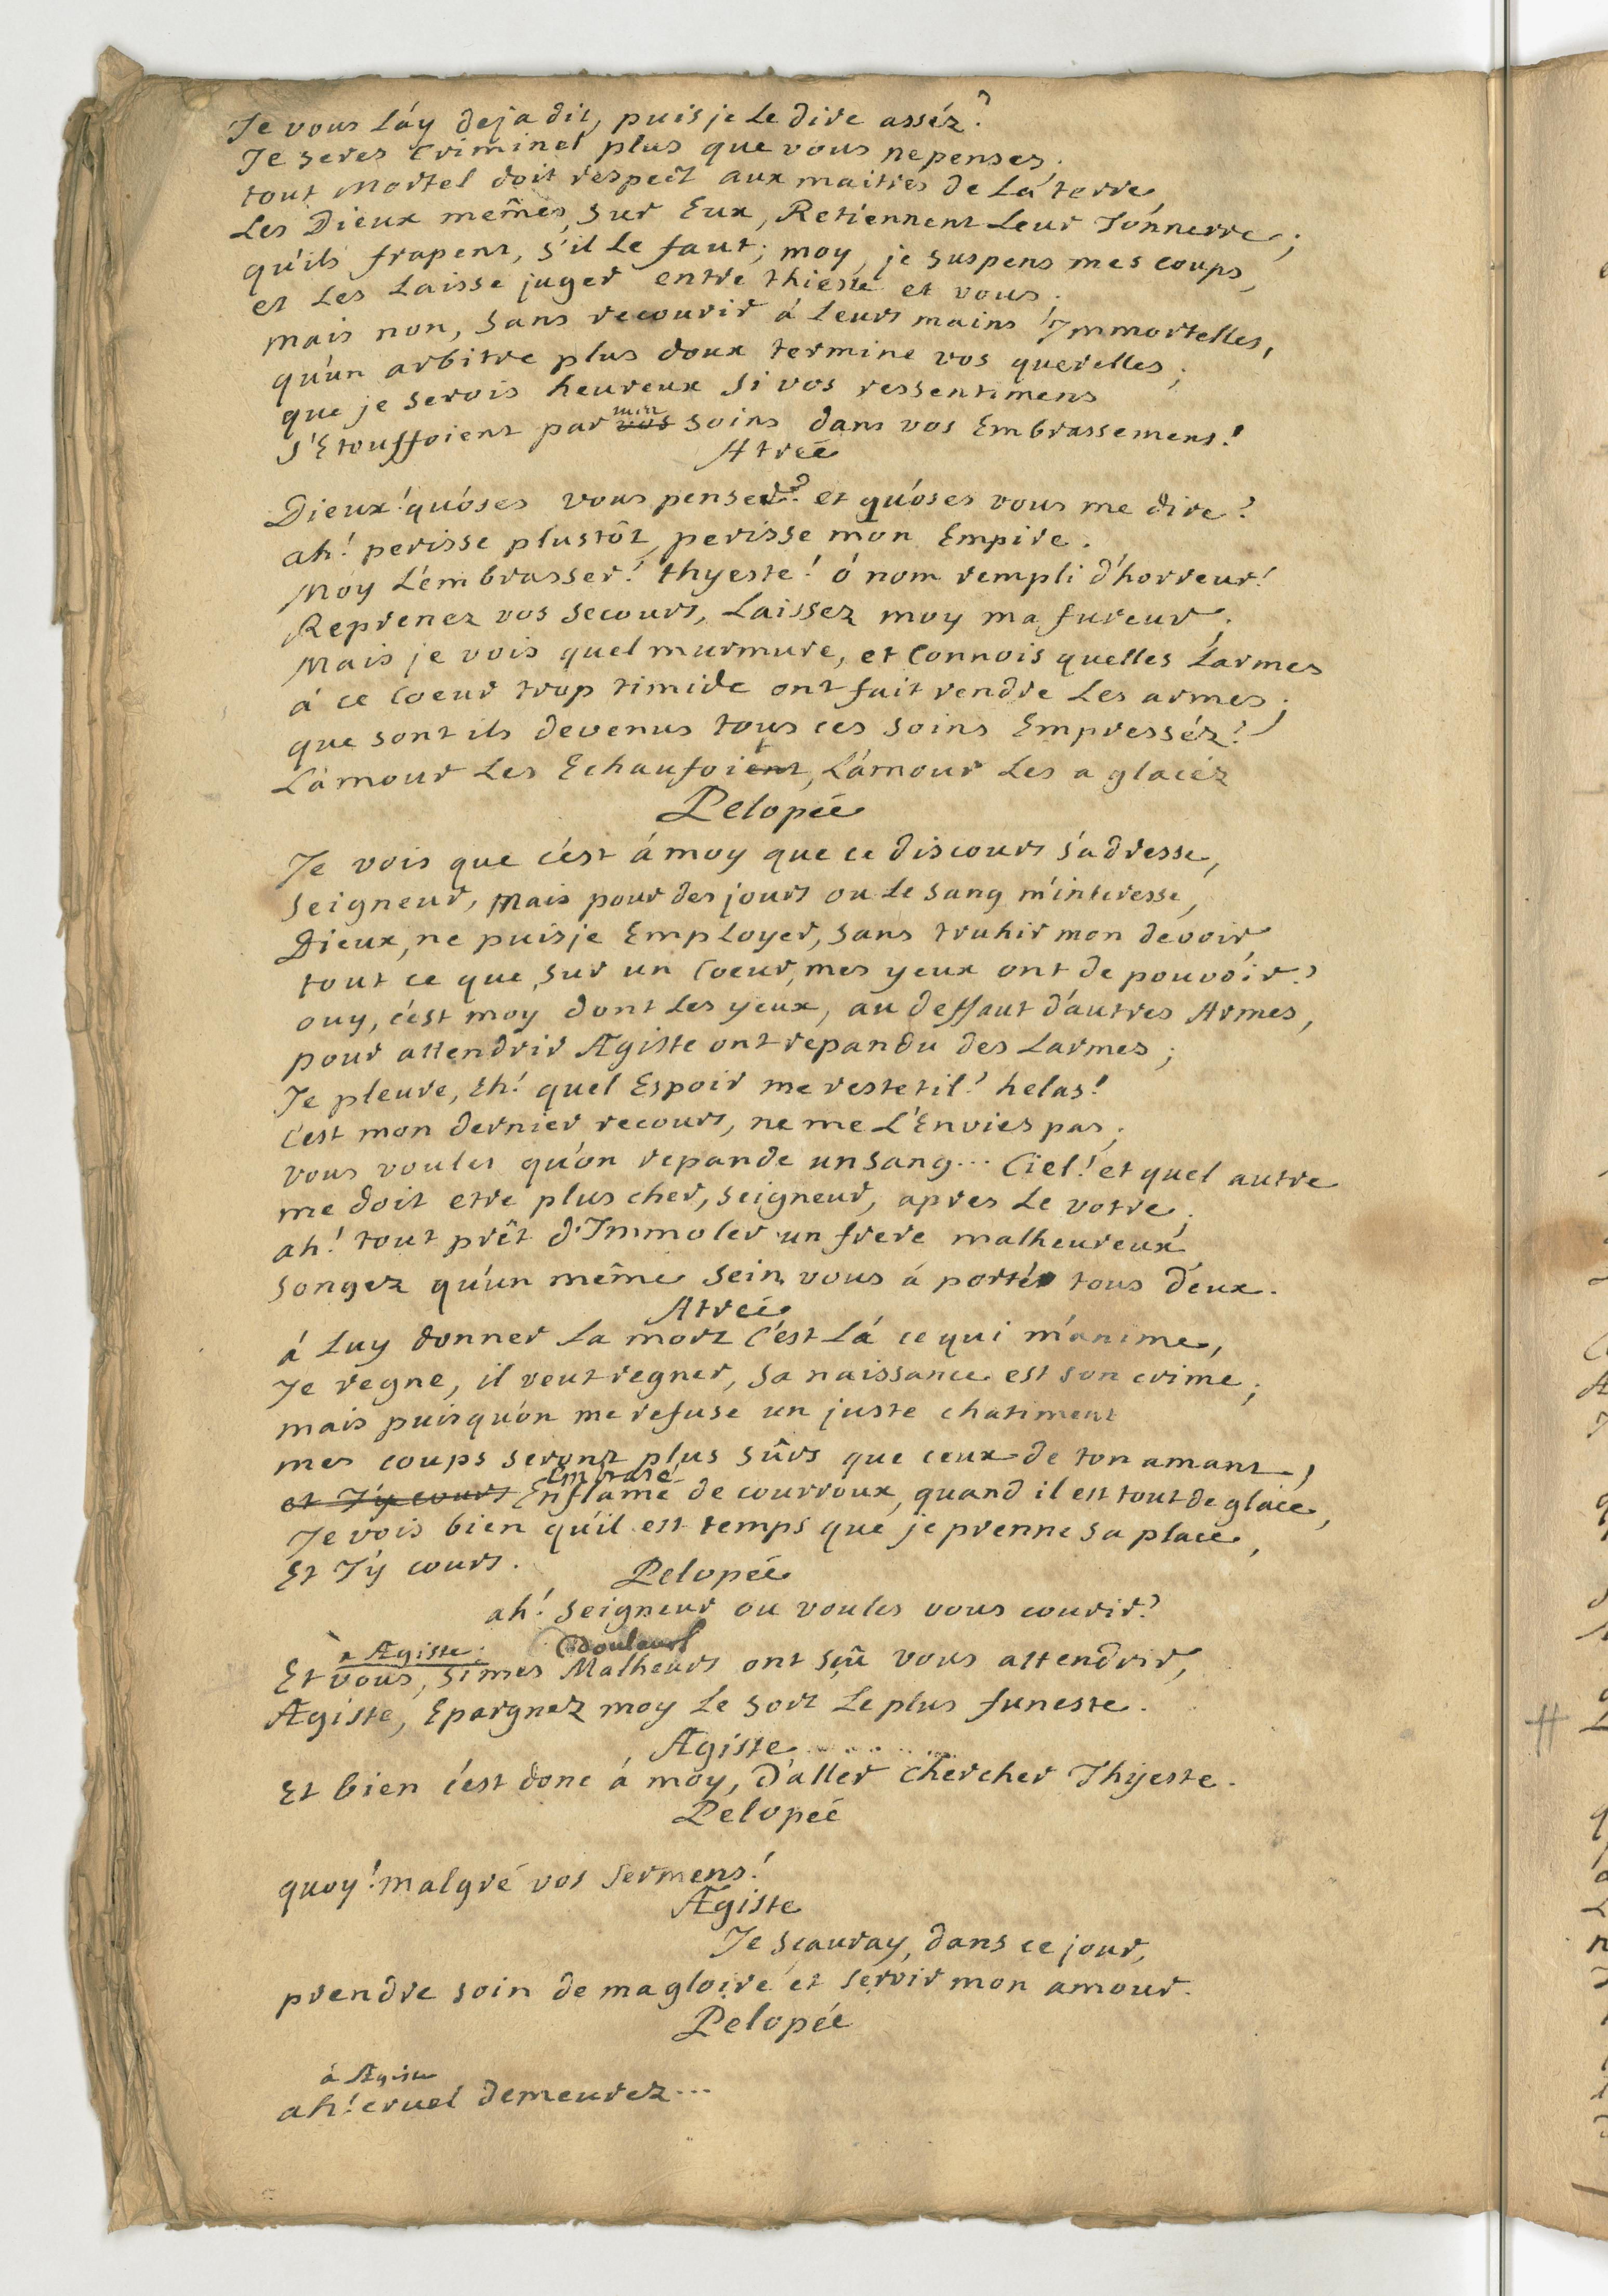 Je vous l'áy deja dit, puis je le dire asséz?
Je seres criminel plus que vous ne penses.
tout Mortel doit respect aux maitres de la terre,
Les Dieux mêmes, sur Eux, Retiennent leur Tonnerre;
qu'ils frapent, s'il le faut; moy, je suspens mes coups,
et les laisse juger entre thieste et vous.
mais non, sans recourir á leurs mains Immortelles,
qu'un arbitre plus doux termine vos querelles;
que je serois heureux si vos ressentimens
s'Etouffoient par vos soins dans vos Embrassemens!
Atreé
Dieux! qu'óses vous penser? et qu'óses vous me dire?
ah! perisse plustôt, perisse mon Empire.
Moy L'embrasser! thyeste! ó nom rempli d'horreur!
Reprenez vos secours, laissez moy ma fureur;
Mais je vois quel murmure, et Connois quelles larmes
á ce Coeur trop timide ont fait rendre les armes;
que sont ils devenus tous ces soins Empresséz?
L'ámour les Echaufoient, L'ámour les a glacéz
Pelopée
Je vois que c'ést á moy que ce discours s'ádresse,
seigneur, Mais pour des jours ou le sang m'interesse,
Dieux, ne puis je Employer, sans trahir mon devoir,
tout ce que, sur un Coeur, mes yeux ont de pouvoir?
ouy, c'ést moy dont les yeux, au deffaut d'áutres Armes,
pour attendrir Ægiste ont repandu des larmes;
Je pleure, Eh! quel Espoir me reste til? helas!
c'est mon dernier recours, ne me L'Envies pas;
vous voules qu'on repande un sang... Ciel! et quel autre
me doit etre plus cher, seigneur, apres le votre;
ah! tout prêt d'Immoler un frere malheureux
songez qu'un même sein vous á porté tous deux.
Atreé
á luy donner la mort c'ést lá ce qui m'ánime,
Je regne, il veut regner, sa naissance est son crime;
mais puisqu'on me refuse un juste chatiment
mes coups seront plus sûrs que ceux de ton amant;
Embrasé
et J'y cours Enflamé de courroux, quand il est tout de glace,
Je vois bien qu'il est temps que je prenne sa place,
Et J'y cours.
Pelopée
ah! seigneur ou voules vous courir?
à Ægiste. douleurs
Et vous, si mes Malheurs ont sçû vous attendrir,
Ægiste, Epargnez moy le sort le plus funeste.
Ægiste
Et bien c'ést donc á moy, d'áller chercher Thyeste.
Pelopeé
quoy! malgré vos sermens!
Ægiste
Je sçauray, dans ce jour,
prendre soin de ma gloire et servir mon amour.
Pelopée
á Ægiste
ah! cruel demeurez...